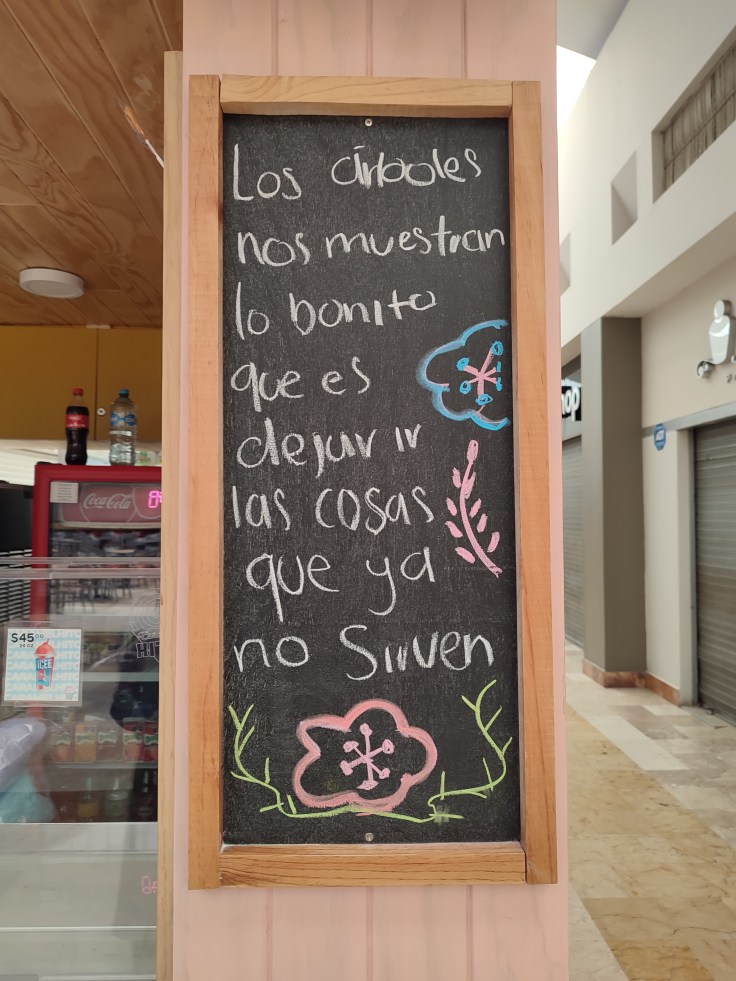 Los árboles
nos muestran
lo bonito
que es
dejar ir
las cosas
que ya
no sirven
Coca-Cola
$45
ICEE